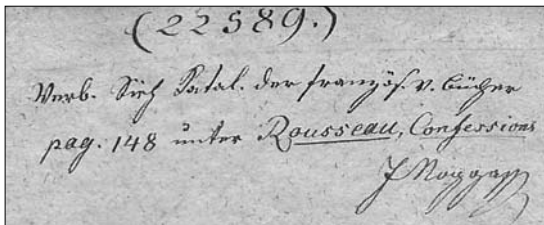 (22589.)
Verb. Sieh Katal. der französ. v. Bücher
pag. 148 unter Rousseau, Confessions